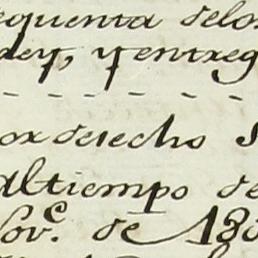 equenta delos
dey, y entreg
- - - - - -
or derecho S
altiempo de
Nov.e de 18